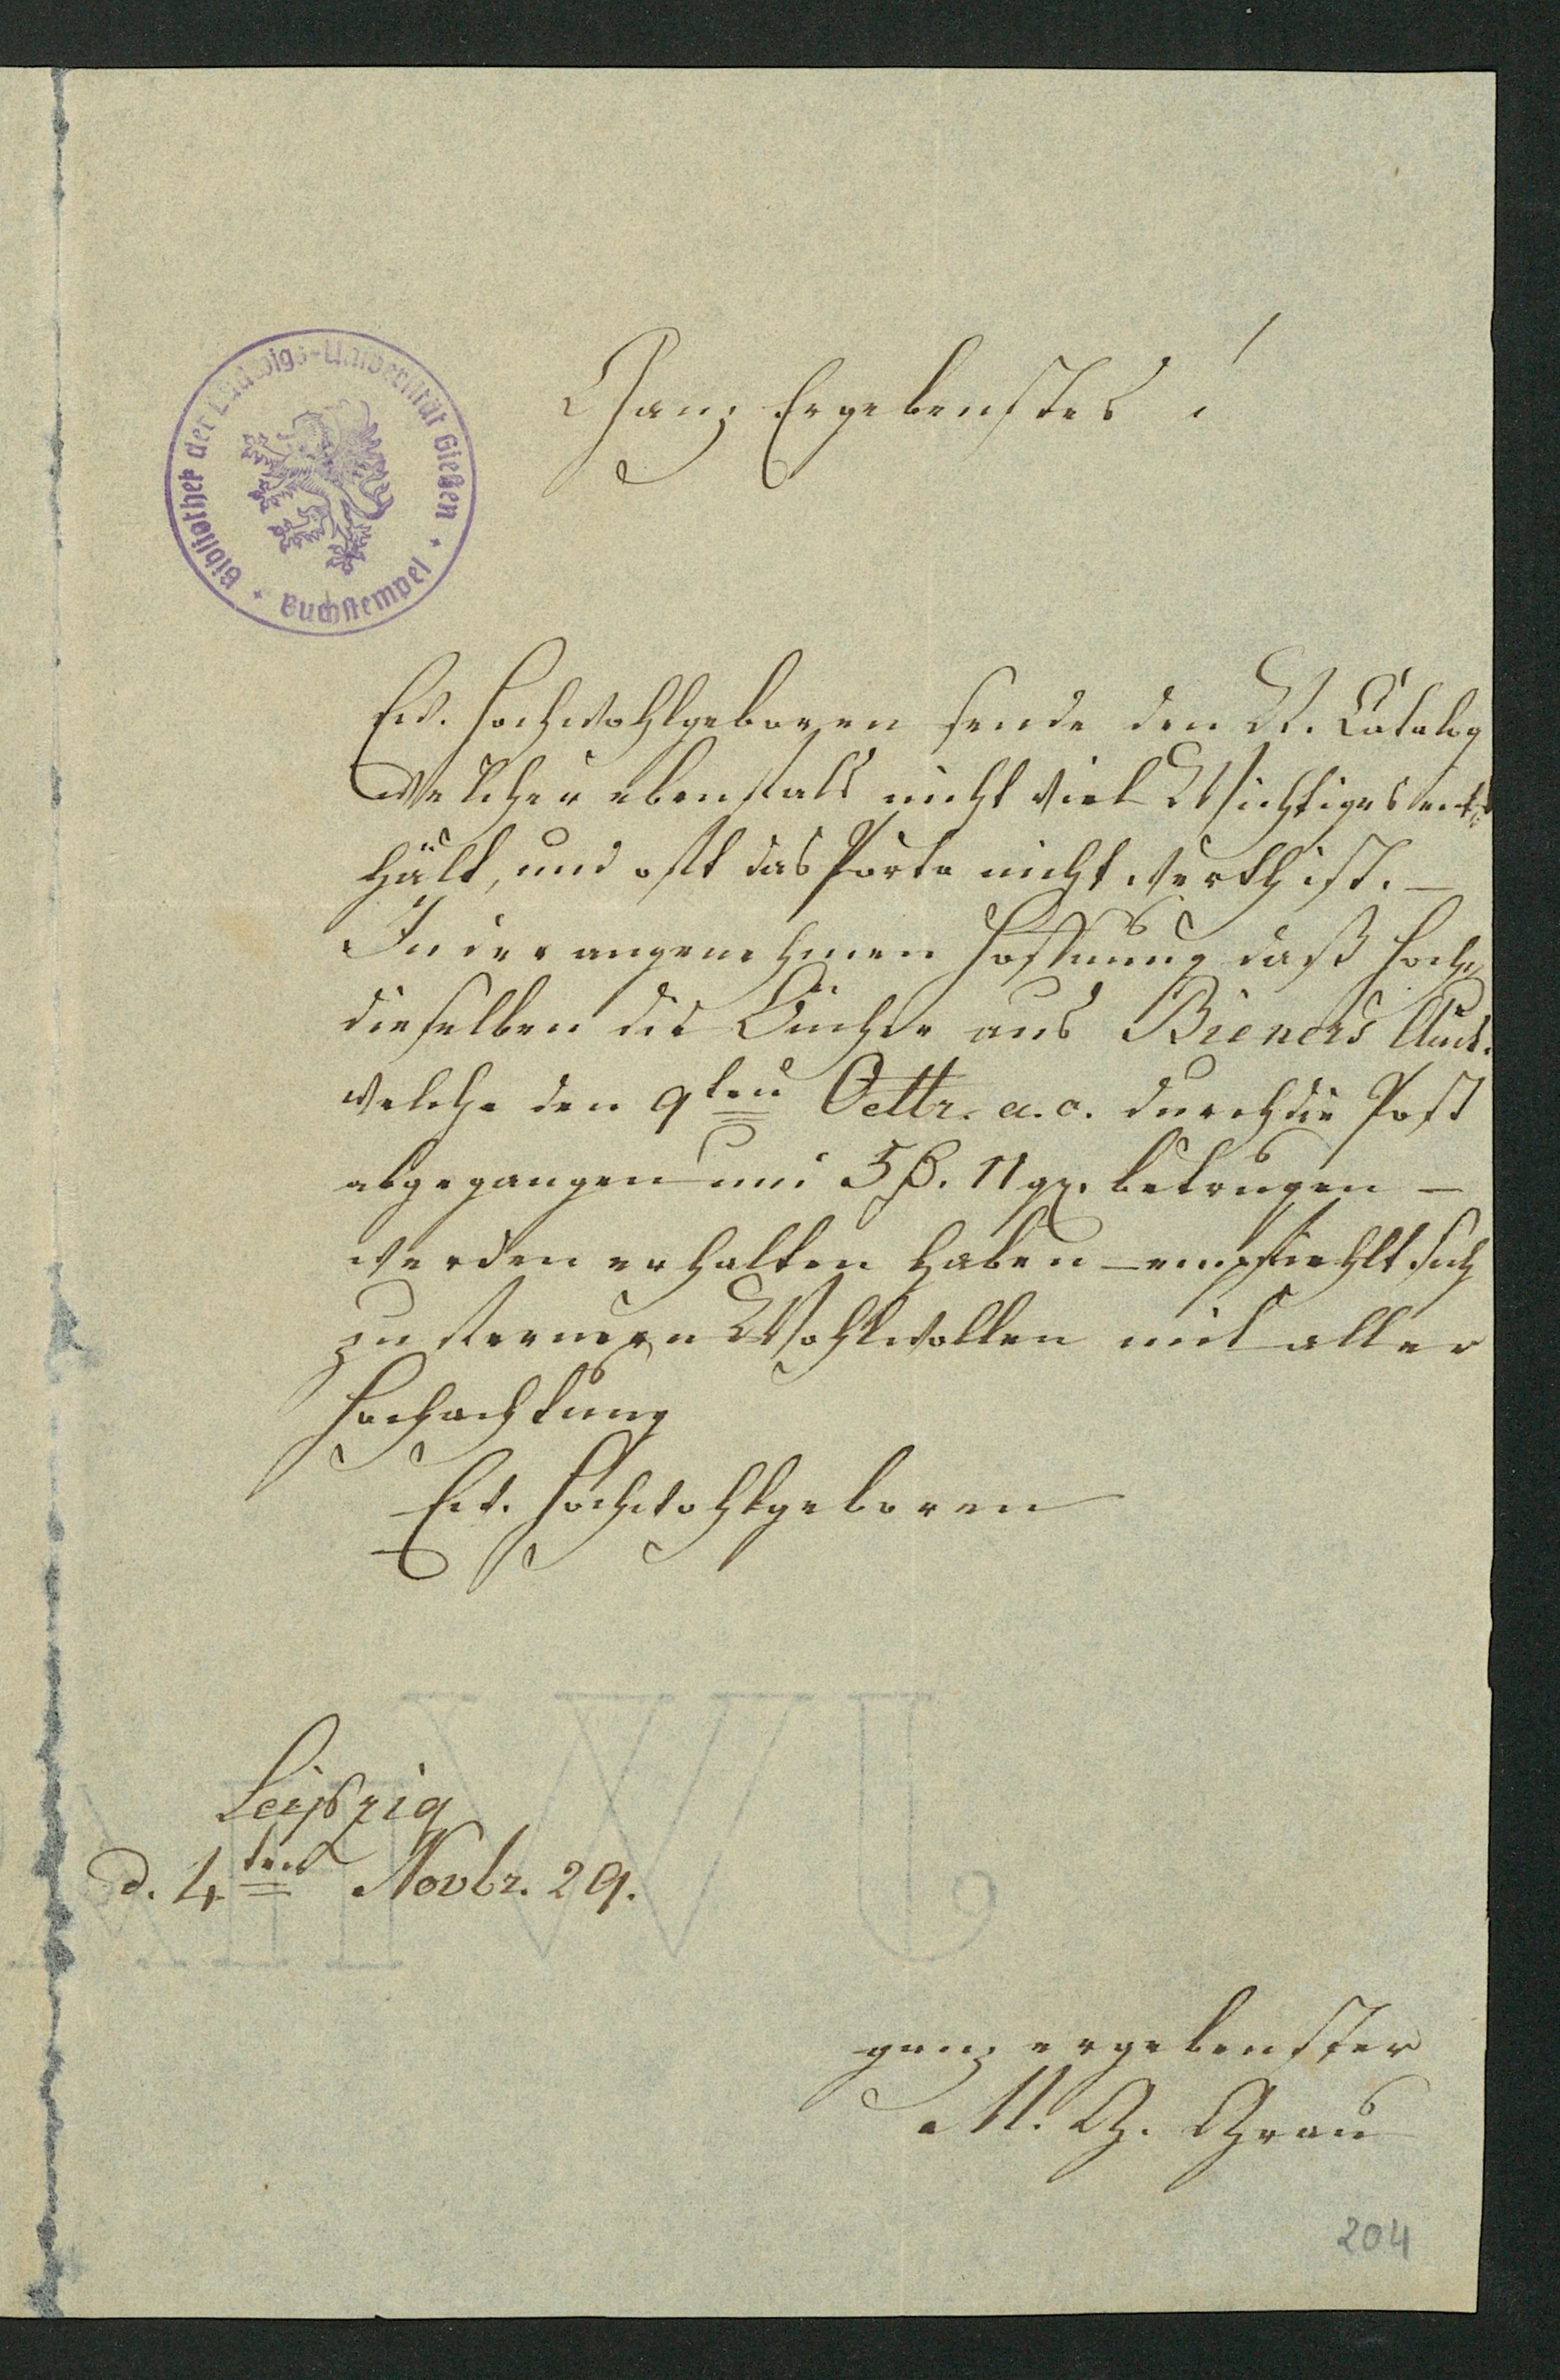 Bibliothek der Ludwigs-Universität Gießen
Buchstempel
Ganz Ergebenstes!
Ew. Hochwohlgeboren sende den W. Catalog
welcher ebenfals nicht viel Wichtiges ent=
hält, und oft das Porto nicht werth ist. —
In der angenehmen Hoffnung daß Hoch=
dieselben die Bücher aus Bieners Auct.
welche den 9ten Octbr. a. c. durch die Post
abgegangen und 5 ß. 11 gr. betrugen —
werden erhalten haben — empfiehlt sich
zu fernern Wohlwollen mit aller
Hochachtung
Ew. Hochwohlgeboren
Leipzig
d. 4ten Novbr. 29.
ganz ergebenster
M. G. Grau
204